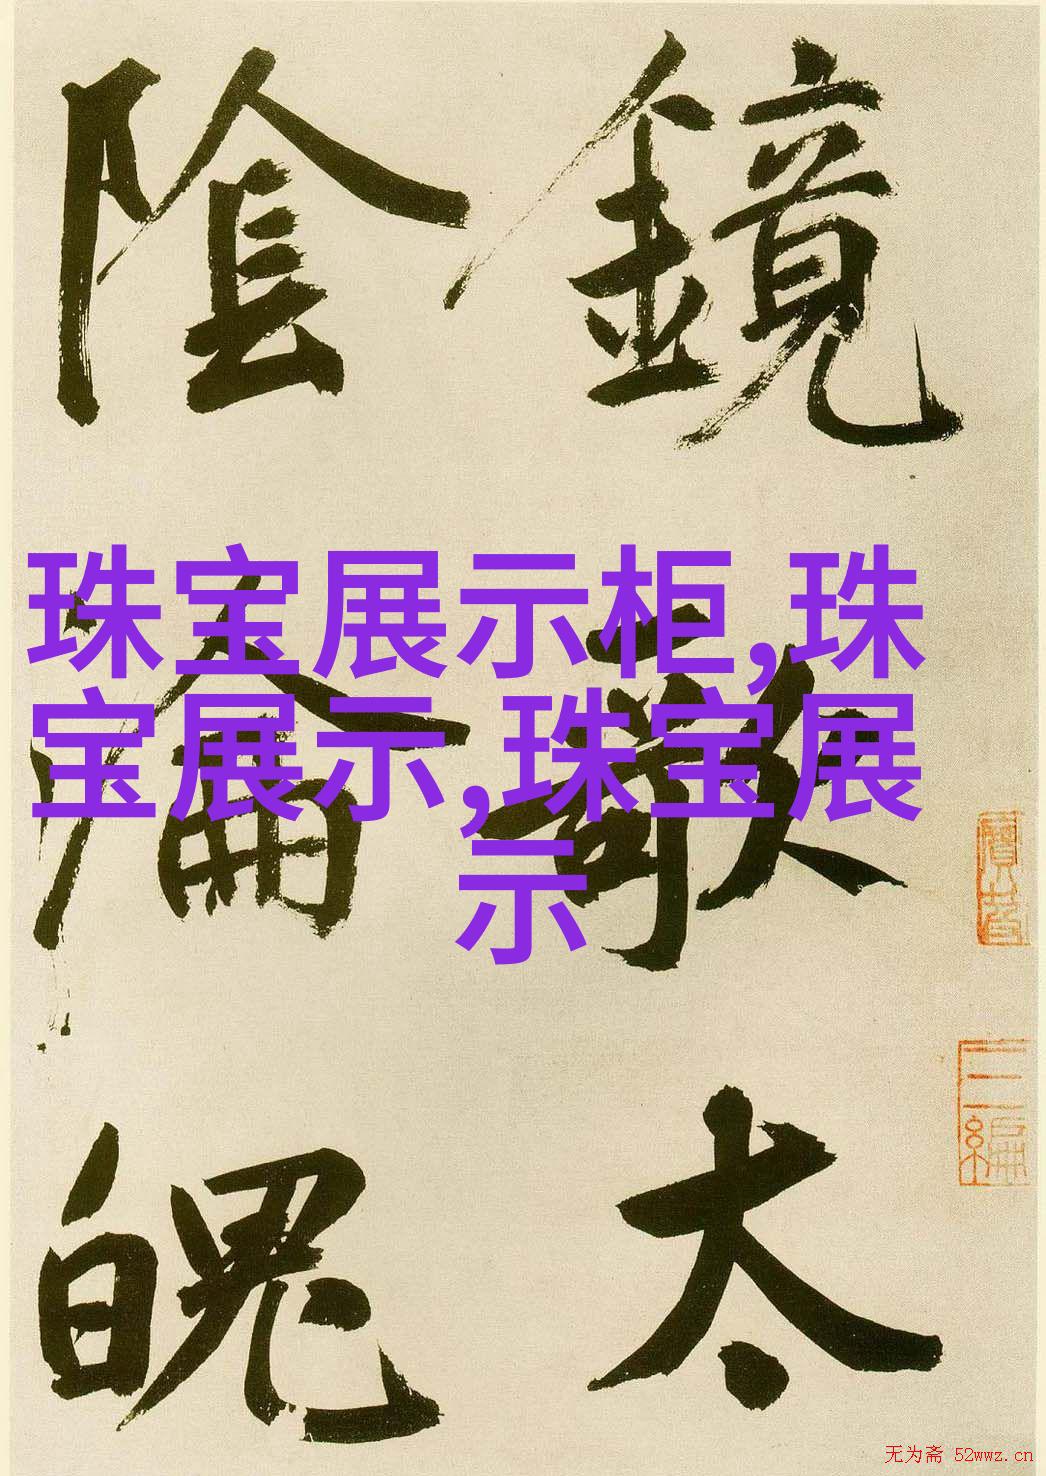 鏡
歌
太
陰
淪
魄
珠宝展示柜,珠
宝展示,珠宝展
示
无为斋 52wwz.cn